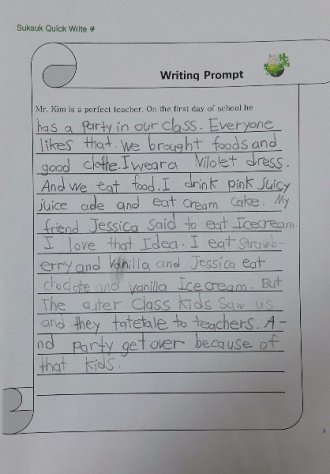 Suksuk Quick Write #
Writing Prompt
Mr. Kim is a perfect teacher. On the first day of school he
has a Party in our class. Everyone
likes that. We brought foods and
good clothe. I wear a Vilolet dress.
And we eat food. I drink pink Juicy
juice ade and eat cream cake. My
friend Jessica said to eat Icecream.
I love that Idea. I eat strawb-
erry and Vanilla and Jessica eat
choclate and Vanilla Icecream. But
The outer Class kids Saw us
and they tatetale to teachers. A-
nd Party get over because of
that kids.